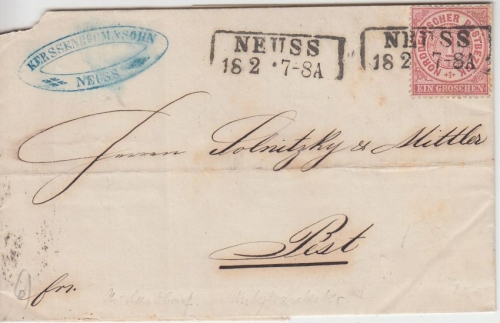 KERSSENBOOM & SOHN
NEUSS
NEUSS
18 2 • 7-8A
NEUSS
18 2 • 7-8A
NORDDEUTSCHER POSTBEZIRK
1
EIN GROSCHEN
Herren Solnitzky & Mittler
Pest
frr.
6